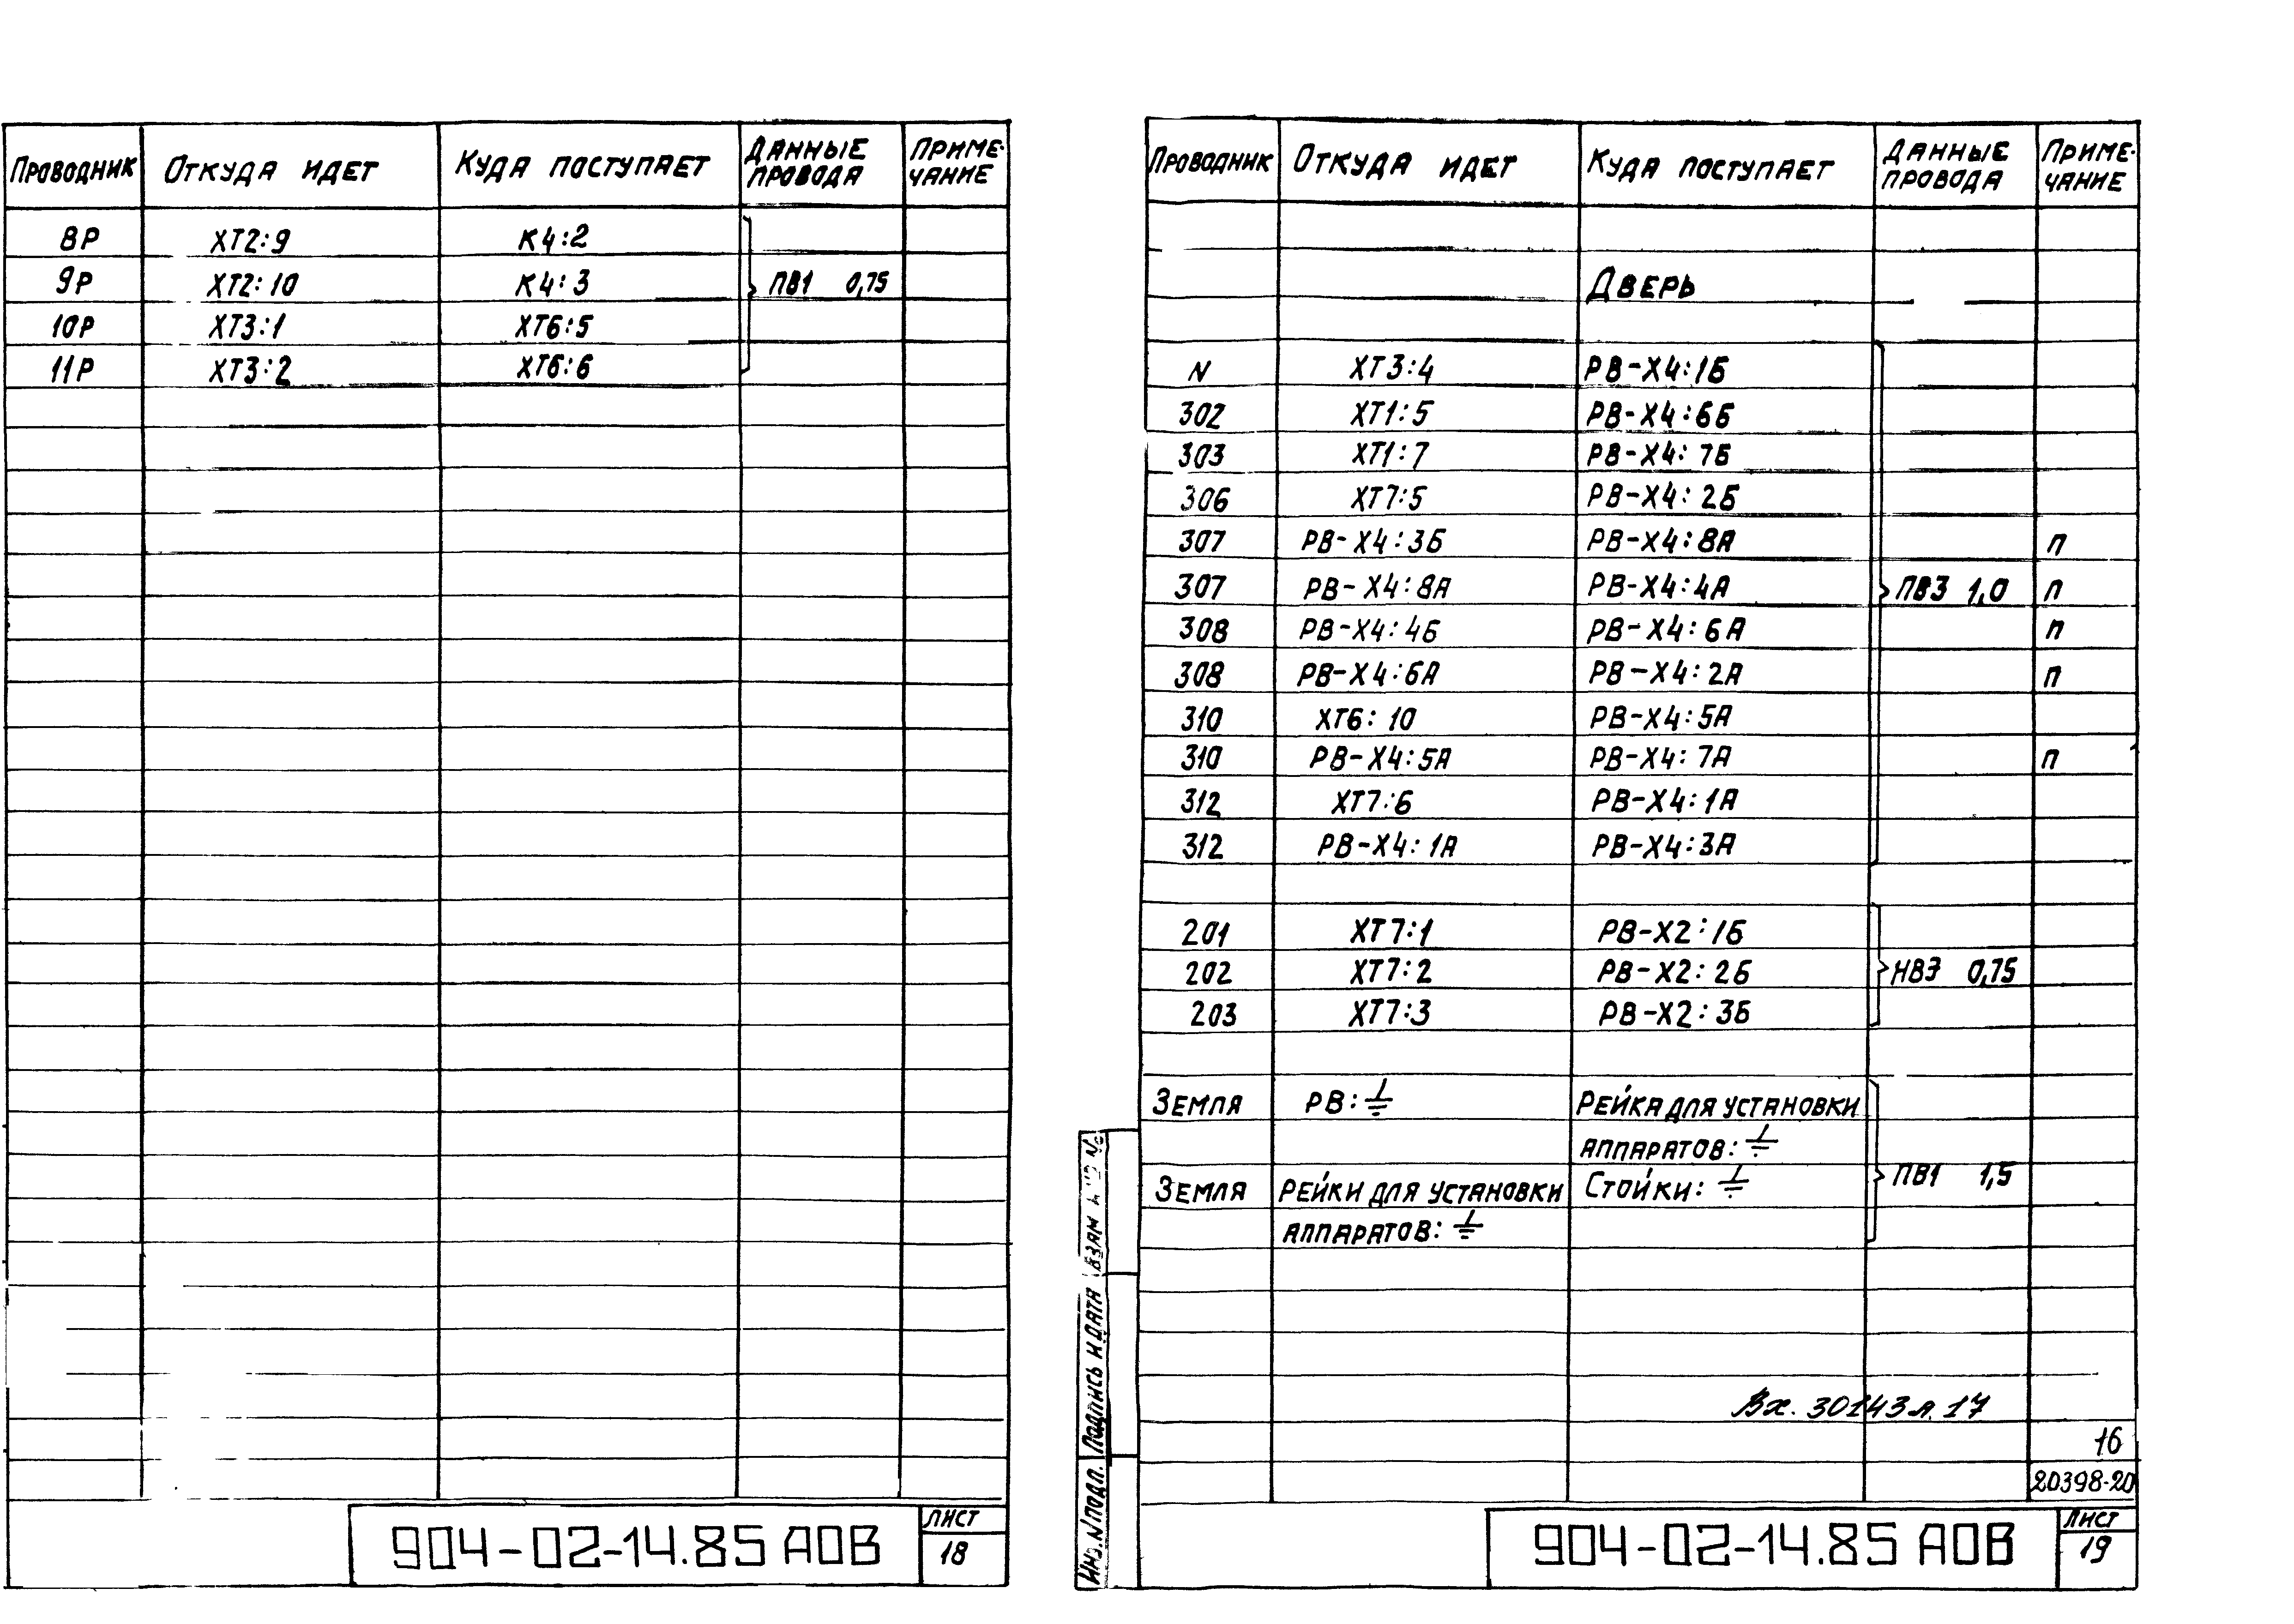 Проводник Откуда идет Куда поступает Данные провода Приме-чание
8Р ХТ2:9 К4:2
9Р ХТ2:10 К4:3 ПВ1 0,75
10Р ХТ3:1 ХТ6:5
11Р ХТ3:2 ХТ6:6
904-02-14.85 АОВ
Лист
18
Проводник Откуда идет Куда поступает Данные провода Приме-чание
Дверь
N ХТ3:4 РВ-Х4:1Б
302 ХТ1:5 РВ-Х4:6Б
303 ХТ1:7 РВ-Х4:7Б
306 ХТ7:5 РВ-Х4:2Б
307 РВ-Х4:3Б РВ-Х4:8А п
307 РВ-Х4:8А РВ-Х4:4А ПВ3 1,0 п
308 РВ-Х4:4Б РВ-Х4:6А п
308 РВ-Х4:6А РВ-Х4:2А п
310 ХТ6:10 РВ-Х4:5А
310 РВ-Х4:5А РВ-Х4:7А п
312 ХТ7:6 РВ-Х4:1А
312 РВ-Х4:1А РВ-Х4:3А
201 ХТ7:1 РВ-Х2:1Б
202 ХТ7:2 РВ-Х2:2Б НВ3 0,75
203 ХТ7:3 РВ-Х2:3Б
Земля РВ:⏚ Рейка для установки
аппаратов:⏚
ПВ1 1,5
Земля Рейки для установки Стойки:⏚
аппаратов:⏚
Вх. 30143 л. 17
16
20398-20
904-02-14.85 АОВ
Лист
19
Инв.N подл. Подпись и дата Взам